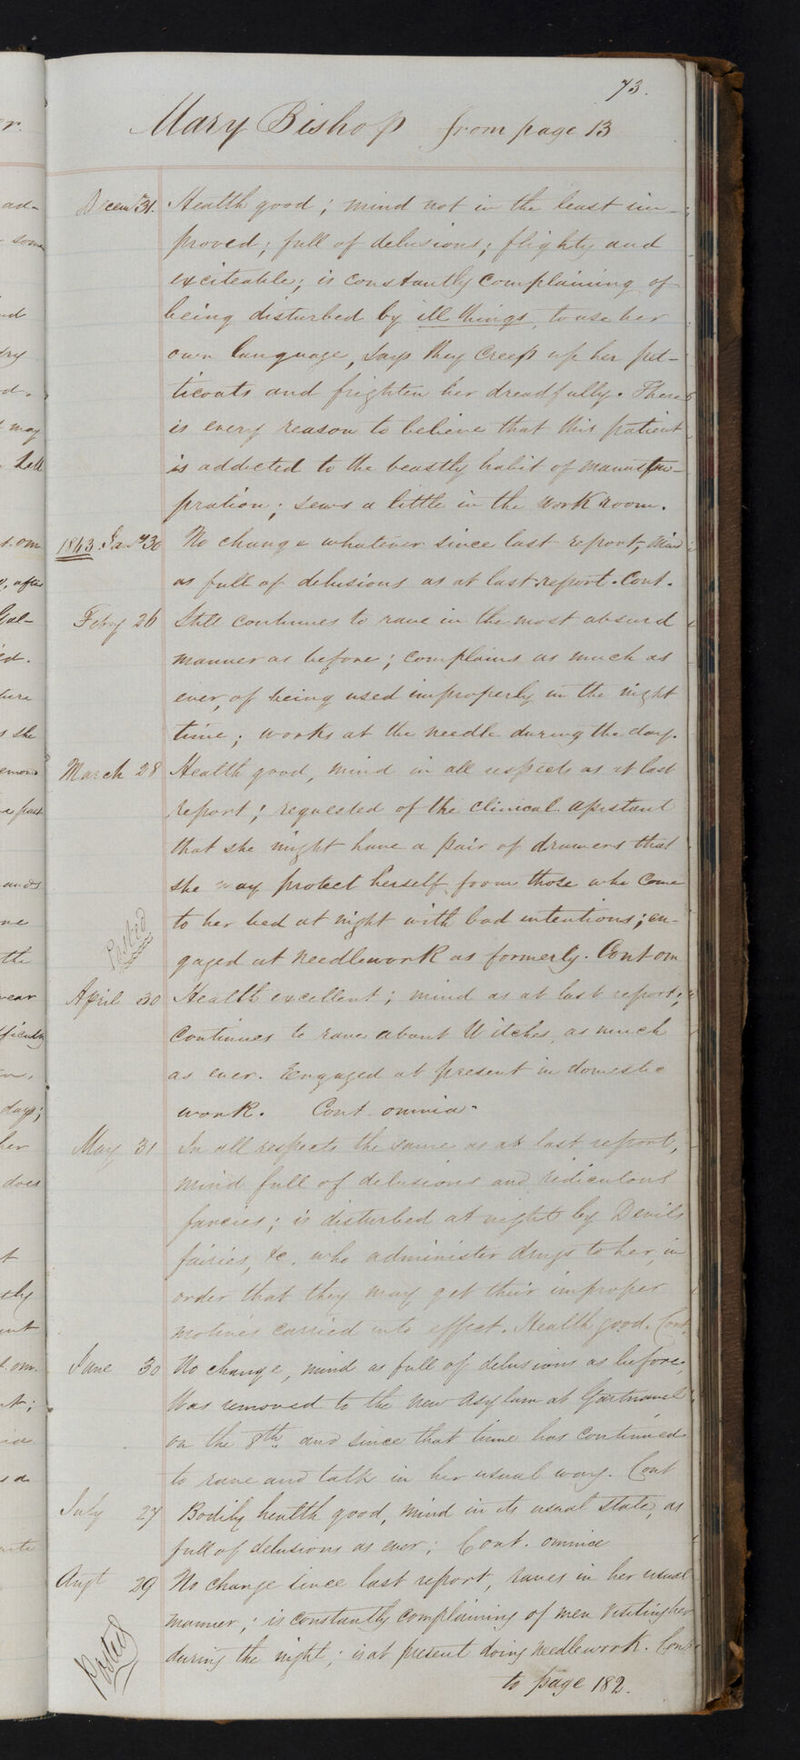 73.
Mary Bishop from page 13
Decem 31. Health good; mind not in the least im-
proved; full of delusions; flighty and
exciteable; is constantly complaining of
being disturbed by ill things, to use her
own language, says they creep up her pet-
ticoats and frighten her dreadfully. There
is every reason to believe that this patient
is addicted to the beastly habit of manustu-
pration; sews a little in the work room.
1843. Jany 30 No change whatever since last report, mind
as full of delusions as at last report. Cont.
Feby 26 Still continues to rave in the most absurd
manner as before; complains as much as
ever, of being used improperly in the night
time; works at the needle during the day.
March 28 Health good, mind in all respects as at last
report; requested of the clinical assistant
that she might have a pair of drawers that
she may protect herself from those who come
to her bed at night with bad intentions; en-
Posted
gaged at needlework as formerly. Cont om
April 30 Health excellent; mind as at last report;
continues to rave about Witches, as much
as ever. Engaged at present in domestic
work. Cont. omnia.
May 31 In all respects the same as at last report,
mind full of delusions and ridiculous
fancies; is disturbed at night by Devils
fairies, &c. who administer drugs to her, in
order that they may get their improper
motives carried into effect. Health good. Cont.
June 30 No change, mind as full of delusions as before,
Was removed to the new Asylum at Gartnavel
on the 8th and since that time has continued
to rave and talk in her usual way. Cont
July 27 Bodily health good, mind in its usual state, as
full of delusions as ever; Cont. omnia
Augt 29 No change since last report, raves in her usual
manner; is constantly complaining of men visiting her
during the night; is at present doing needlework. Cont
Posted
to page 182.